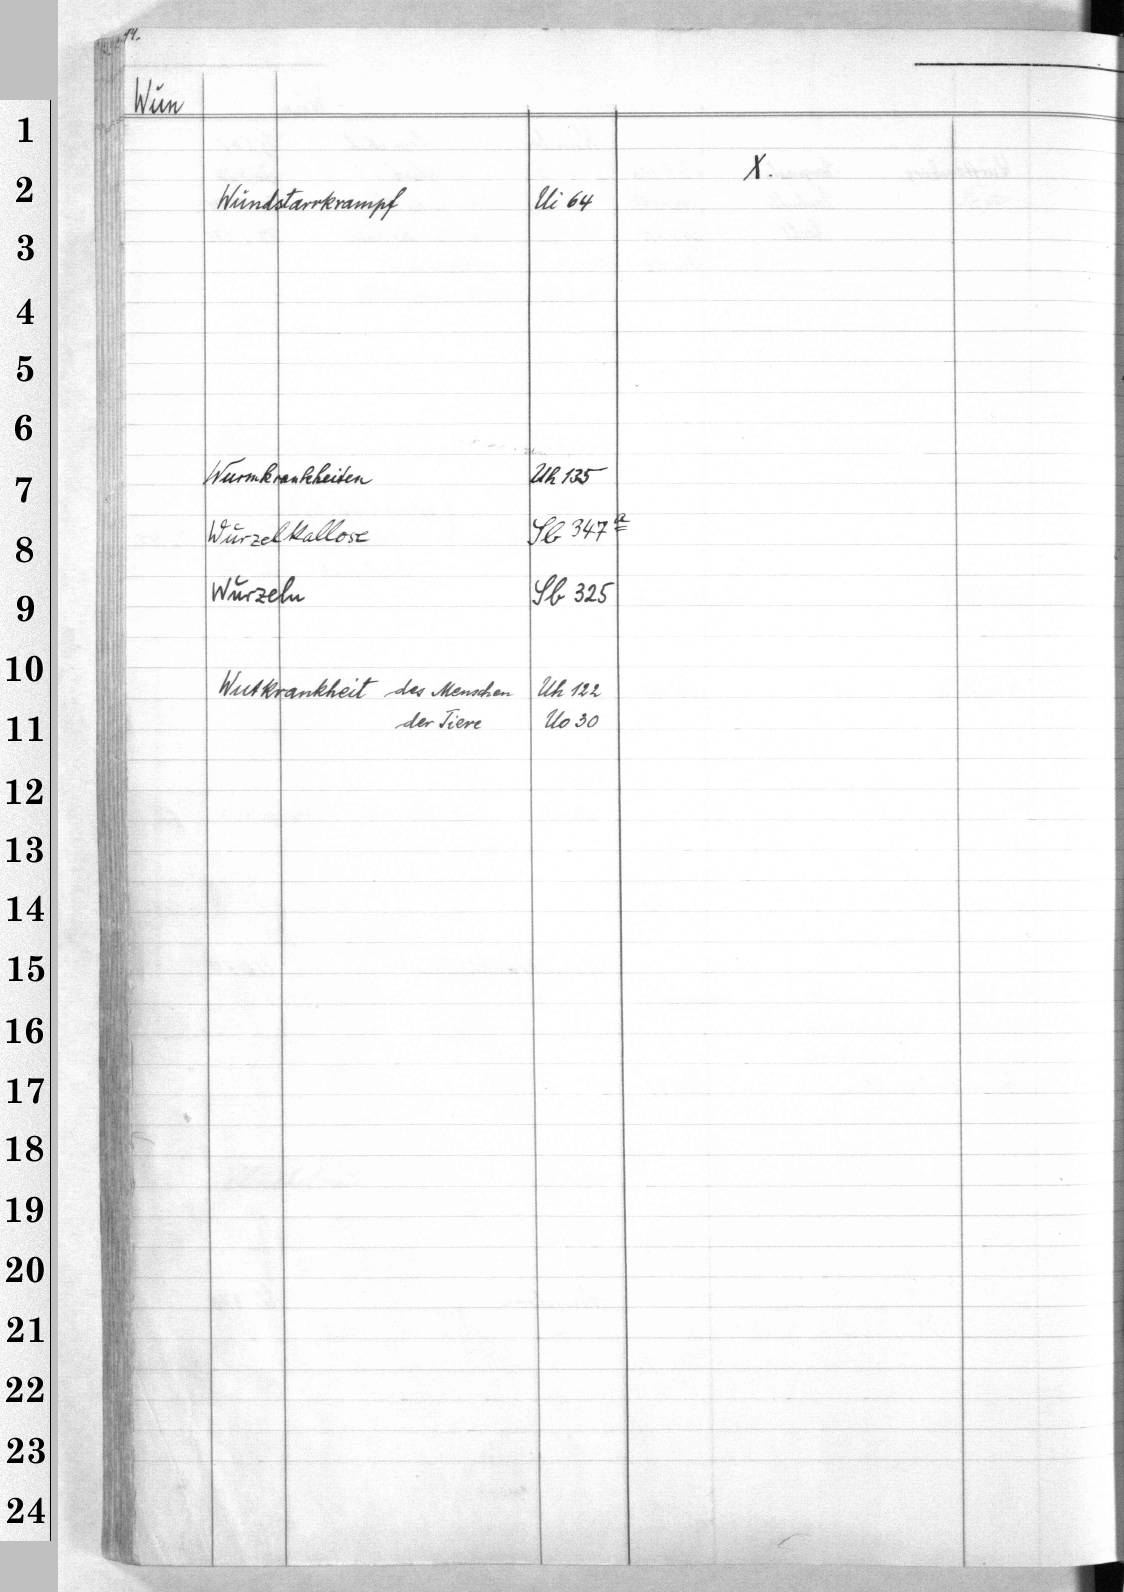 14.
Wun
1
X.
2 Wundstarrkrampf Ui 64
3
4
5
6
7 Wurmkrankheiten Uh 135
8 Wurzelkallose Sb 347a
9 Wurzeln Sb 325
10 Wutkrankheit des Menschen Uh 122
11 der Tiere Uo 30
12
13
14
15
16
17
18
19
20
21
22
23
24